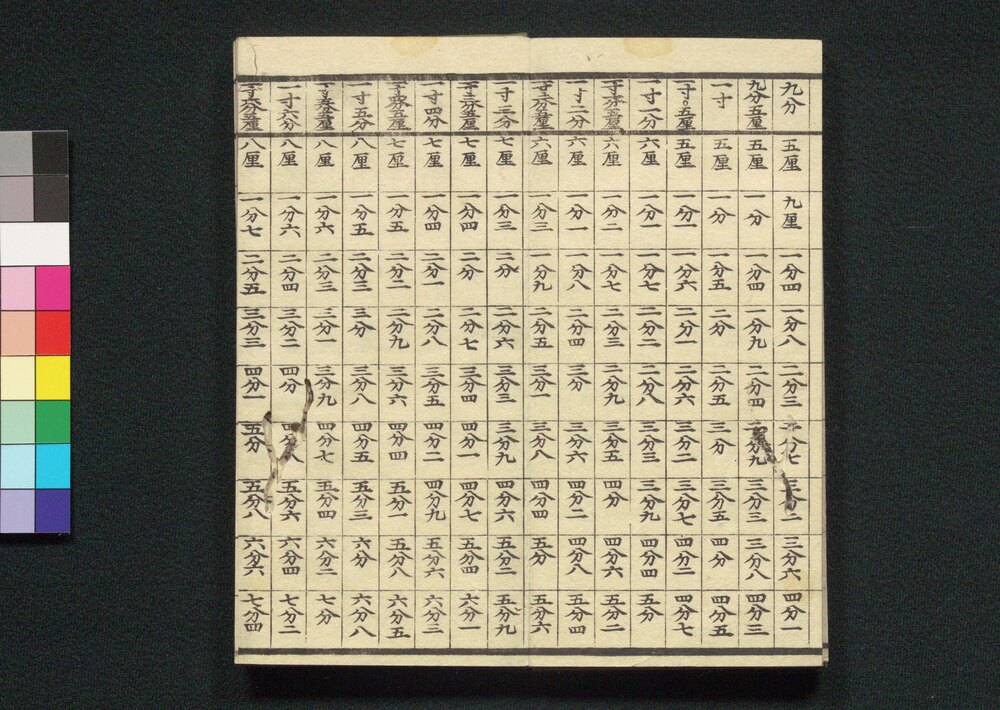 九分 五厘 九厘 一分四 一分八 二分三 二分七 三分二 三分六 四分一
九分五厘 五厘 一分 一分四 一分九 二分四 二分九 三分三 三分八 四分三
一寸 五厘 一分 一分五 二分 二分五 三分 三分五 四分 四分五
一寸〇五厘 五厘 一分一 一分六 二分一 二分六 三分二 三分七 四分二 四分七
一寸一分 六厘 一分一 一分七 二分二 二分八 三分三 三分九 四分四 五分
一寸一分五厘 六厘 一分二 一分七 二分三 二分九 三分五 四分 四分六 五分二
一寸二分 六厘 一分一 一分八 二分四 三分 三分六 四分二 四分八 五分四
一寸二分五厘 六厘 一分三 一分九 二分五 三分一 三分八 四分四 五分 五分六
一寸三分 七厘 一分三 二分 二分六 三分三 三分九 四分六 五分二 五分九
一寸三分五厘 七厘 一分四 二分 二分七 三分四 四分一 四分七 五分四 六分一
一寸四分 七厘 一分四 二分一 二分八 三分五 四分二 四分九 五分六 六分三
一寸四分五厘 七厘 一分五 二分二 二分九 三分六 四分四 五分一 五分八 六分五
一寸五分 八厘 一分五 二分三 三分 三分八 四分五 五分三 六分 六分八
一寸五分五厘 八厘 一分六 二分三 三分一 三分九 四分七 五分四 六分二 七分
一寸六分 八厘 一分六 二分四 三分二 四分 四分八 五分六 六分四 七分二
一寸六分五厘 八厘 一分七 二分五 三分三 四分一 五分 五分八 六分六 七分四